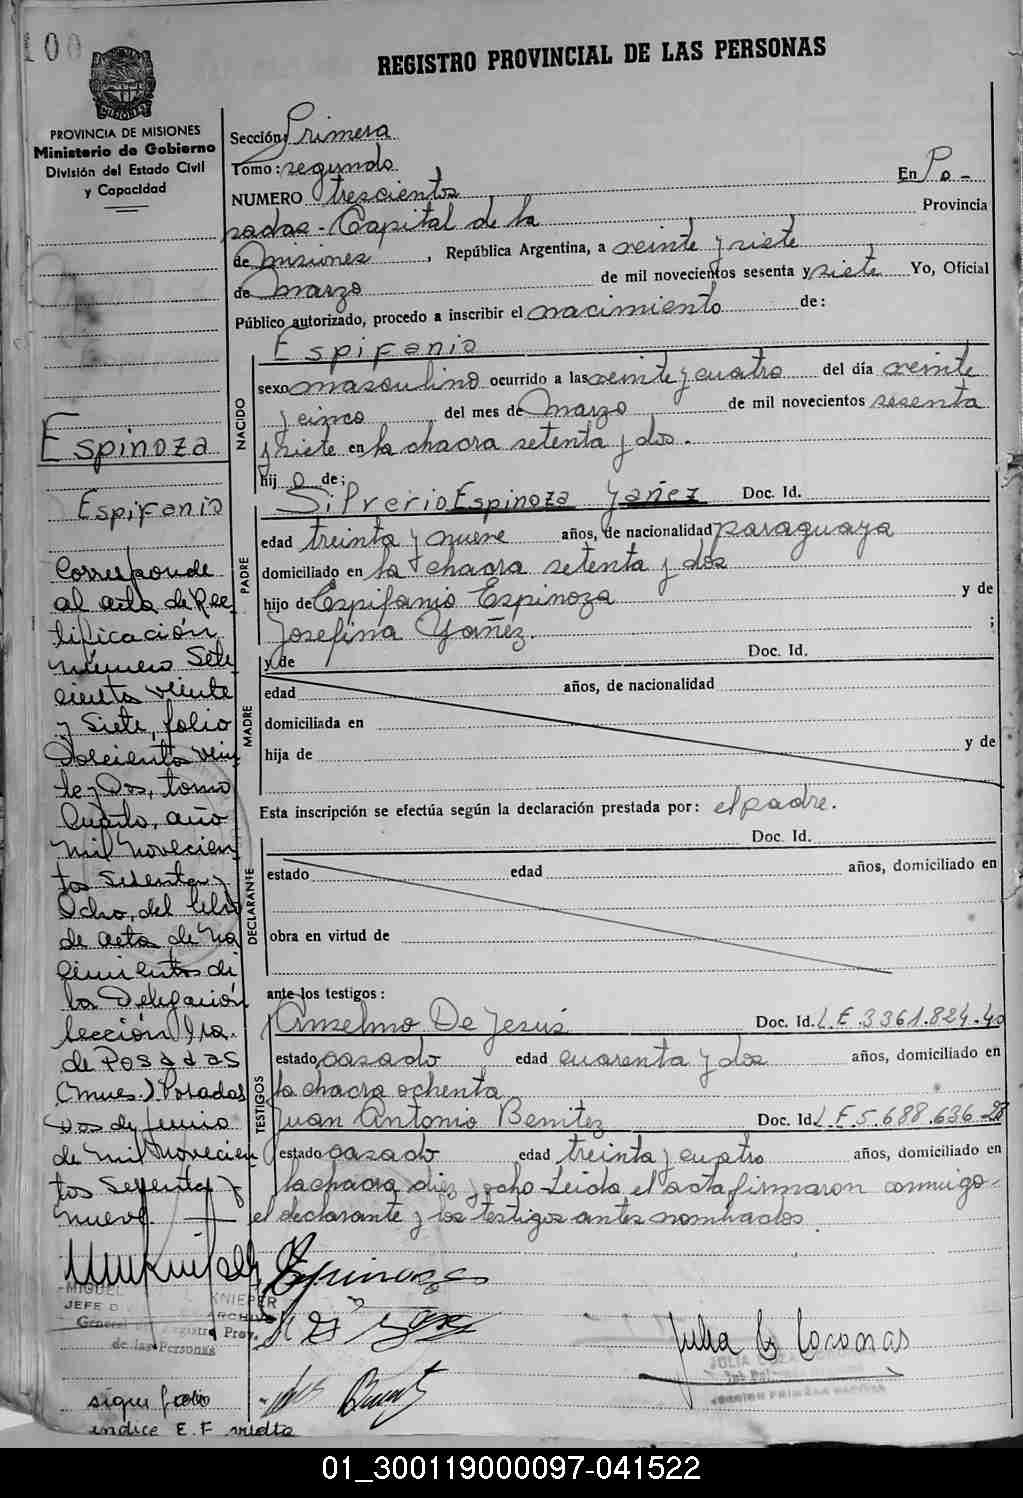 100
REGISTRO PROVINCIAL DE LAS PERSONAS
PROVINCIA DE MISIONES
Ministerio de Gobierno
División del Estado Civil
y Capacidad
Sección: Primera
Tomo: segundo
NUMERO trescientos En Po-
sadas - Capital de la Provincia
de Misiones, República Argentina, a veinte y siete
de Marzo de mil novecientos sesenta y siete Yo, Oficial
Público autorizado, procedo a inscribir el nacimiento de:
Espifanio
NACIDO
sexo masculino ocurrido a las veinte y cuatro del día veinte
y cinco del mes de Marzo de mil novecientos sesenta
y siete en la chacra setenta y dos.
hijo de:
Silverio Espinoza Yañez Doc. Id.
PADRE
edad treinta y nueve años, de nacionalidad paraguaya
domiciliado en la chacra setenta y dos
hijo de Espifanio Espinoza y de
Josefina Yañez. ;
y de Doc. Id.
MADRE
edad años, de nacionalidad
domiciliada en
hija de y de
Esta inscripción se efectúa según la declaración prestada por: el padre.
Doc. Id.
DECLARANTE
estado edad años, domiciliado en
obra en virtud de
ante los testigos:
TESTIGOS
Anselmo De Jesús Doc. Id. L.E. 3361.824.40
estado casado edad cuarenta y dos años, domiciliado en
la chacra ochenta
Juan Antonio Benitez Doc. Id. L.E. 5.688.636-28
estado casado edad treinta y cuatro años, domiciliado en
la chacra diez y ocho - Leida el acta firmaron conmigo-
el declarante y los testigos antes nombrados.
Espinoza
Espifanio
Corresponde
al acta de Rec-
tificación
número Sete
cientos veinte
y Siete, folio
Doscientos vein
te y Dos, tomo
Cuarto, año
mil novecien
tos Setenta y
Ocho, del libro
de acta de Na
cimientos de
la Delegación
Sección 1ra.
de Posadas
(Mnes.) Posadas
Dos de Junio
de mil novecien
tos Setenta y
nueve.
MIGUEL KNIEPER
JEFE D ARCHIVO
General del Registro Prov.
de las Personas
Espinoza
Julia G. Coronas
JULIA
sigue folio
indice E. F vuelta
01_300119000097-041522